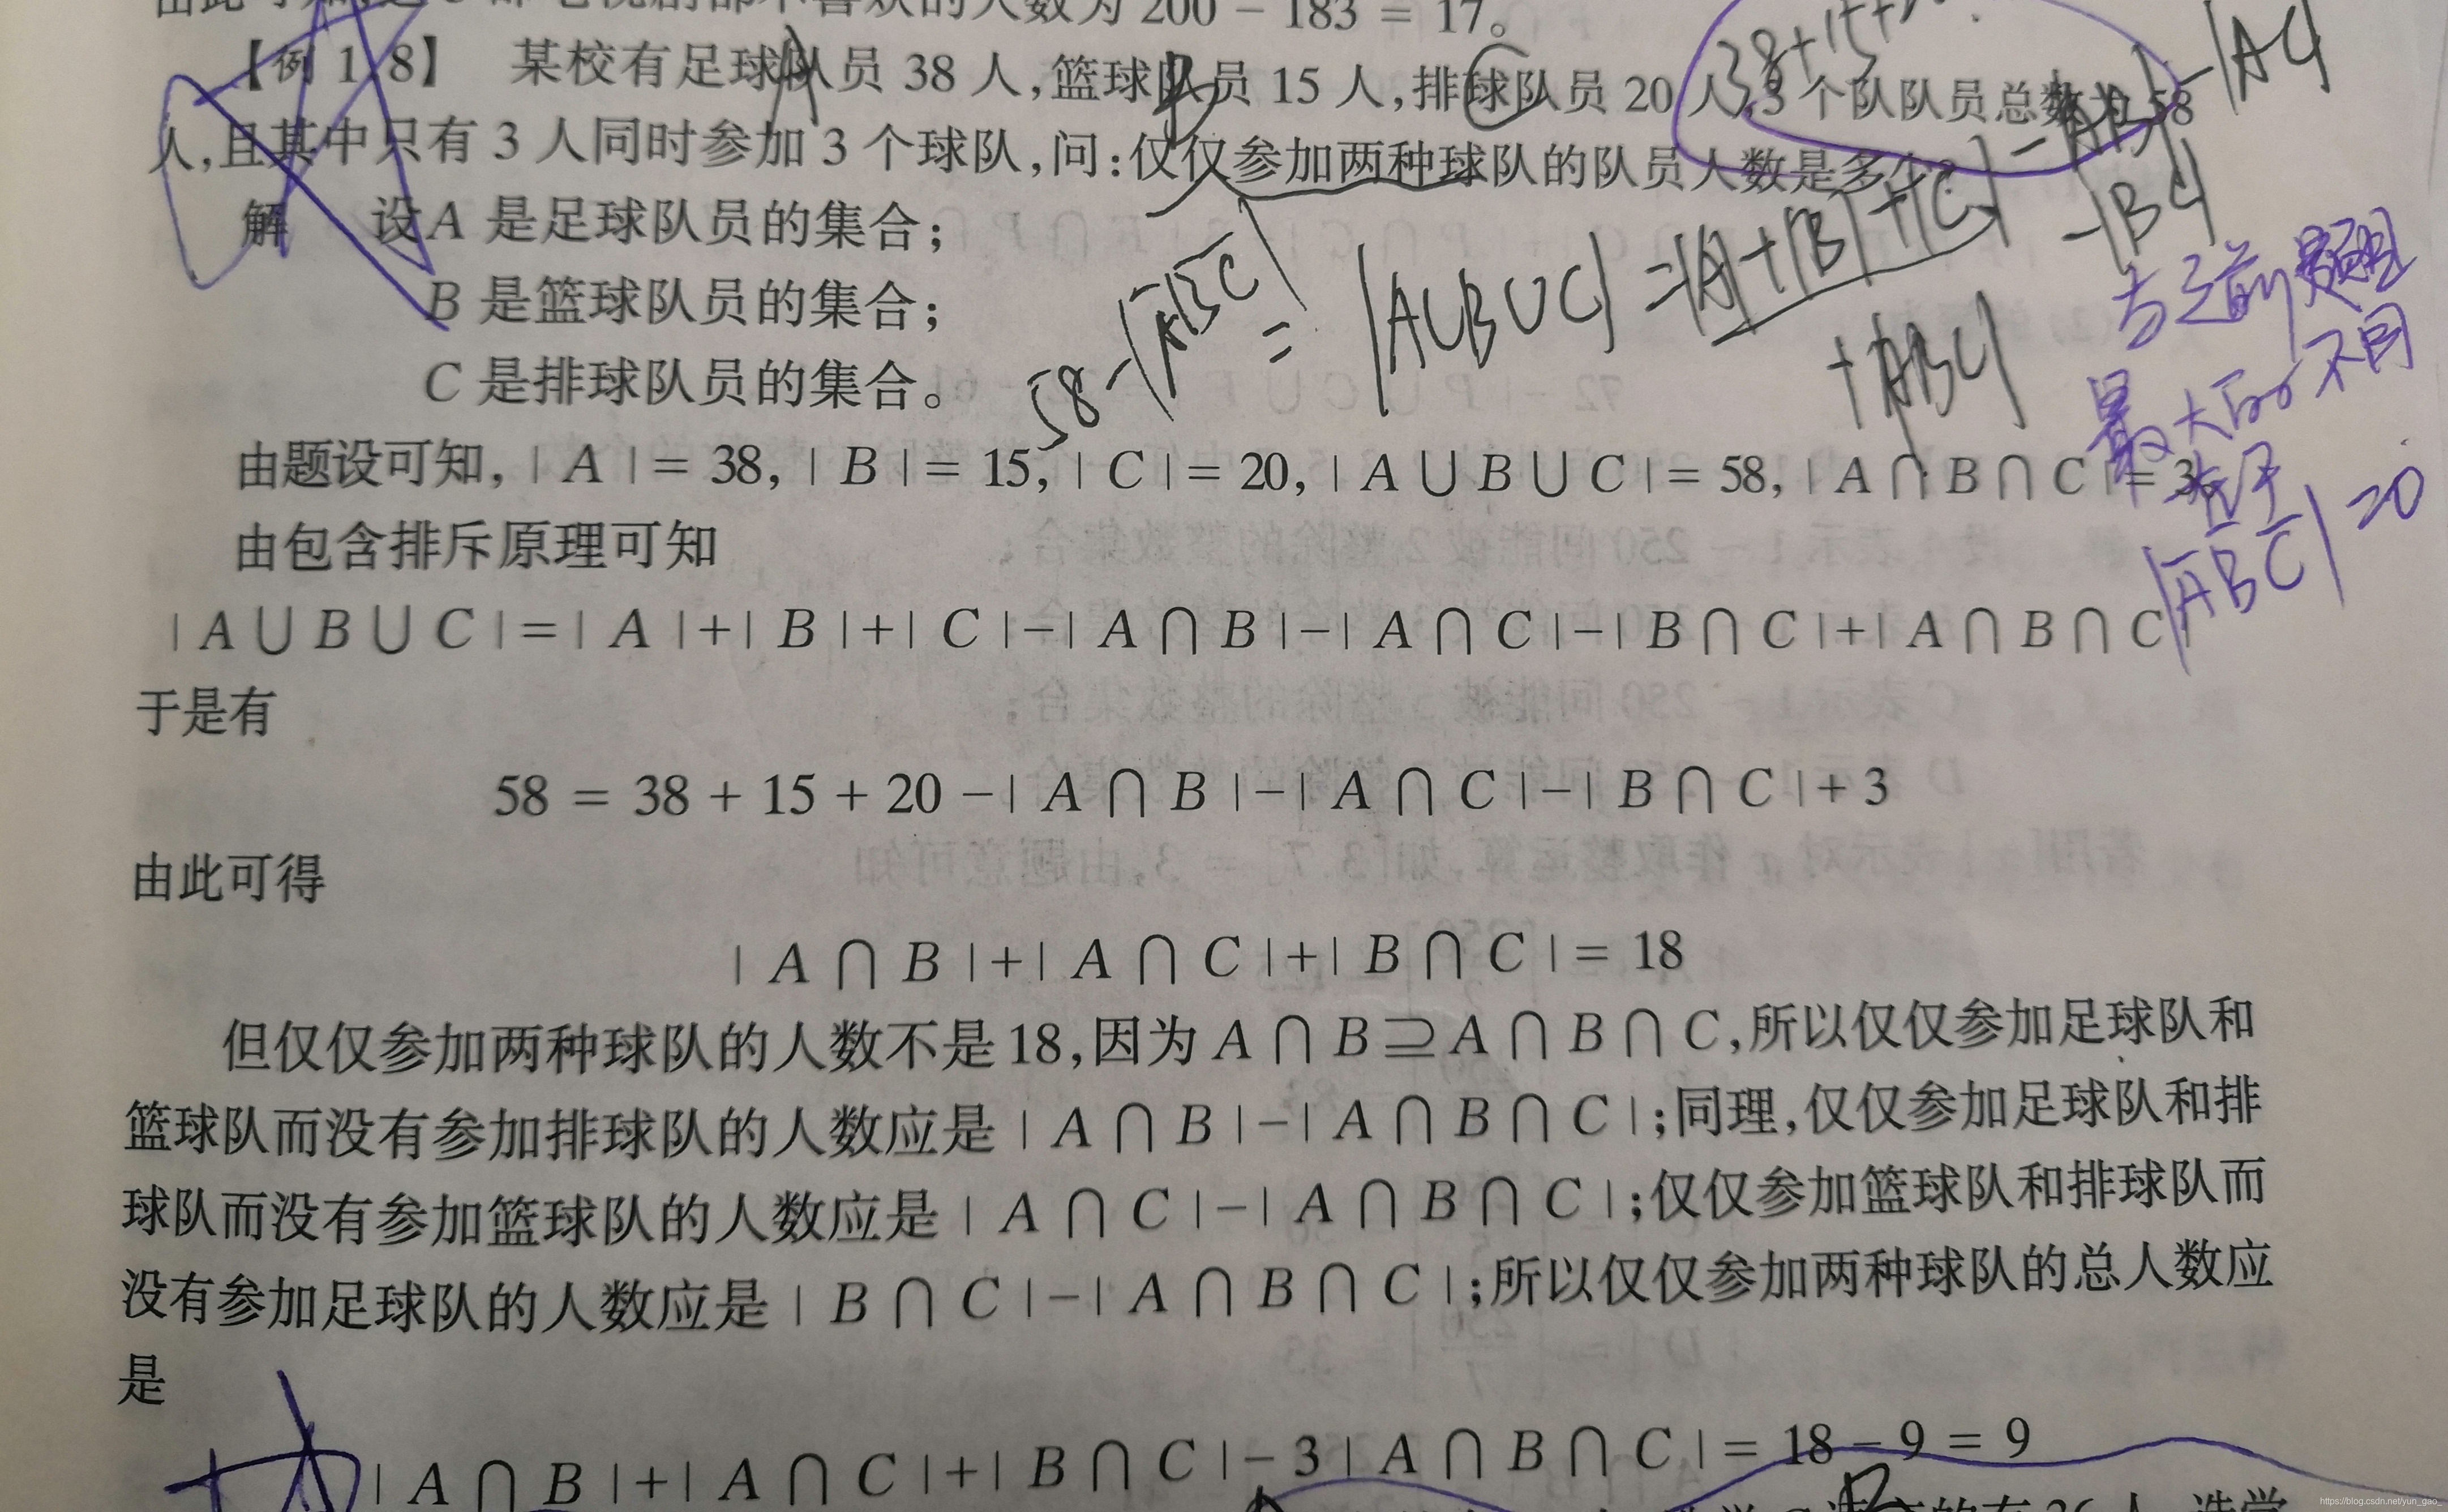 由此可知,这3部电视剧都不喜欢的人数为 200 − 183 = 17。
【例 1.8】 某校有足球队员 38 人,篮球队员 15 人,排球队员 20 人,3 个队队员总数为 58
人,且其中只有 3 人同时参加 3 个球队,问:仅仅参加两种球队的队员人数是多少?
解 设 A 是足球队员的集合;
B 是篮球队员的集合;
C 是排球队员的集合。
由题设可知, | A | = 38, | B | = 15, | C | = 20, | A ∪ B ∪ C | = 58, | A ∩ B ∩ C | = 3。
由包含排斥原理可知
| A ∪ B ∪ C | = | A | + | B | + | C | − | A ∩ B | − | A ∩ C | − | B ∩ C | + | A ∩ B ∩ C |
于是有
58 = 38 + 15 + 20 − | A ∩ B | − | A ∩ C | − | B ∩ C | + 3
由此可得
| A ∩ B | + | A ∩ C | + | B ∩ C | = 18
但仅仅参加两种球队的人数不是 18,因为 A ∩ B ⊇ A ∩ B ∩ C,所以仅仅参加足球队和
篮球队而没有参加排球队的人数应是 | A ∩ B | − | A ∩ B ∩ C |;同理,仅仅参加足球队和排
球队而没有参加篮球队的人数应是 | A ∩ C | − | A ∩ B ∩ C |;仅仅参加篮球队和排球队而
没有参加足球队的人数应是 | B ∩ C | − | A ∩ B ∩ C |;所以仅仅参加两种球队的总人数应
是
| A ∩ B | + | A ∩ C | + | B ∩ C | − 3 | A ∩ B ∩ C | = 18 − 9 = 9
A
B
C
38+15+
58−|A̅B̅C̅| = |A∪B∪C| = |A|+|B|+|C| −|AB| −|AC|
−|BC|
+|ABC|
与之前题
最大的不同
在于
|A̅B̅C̅|=0
B
https://blog.csdn.net/yun_gao_